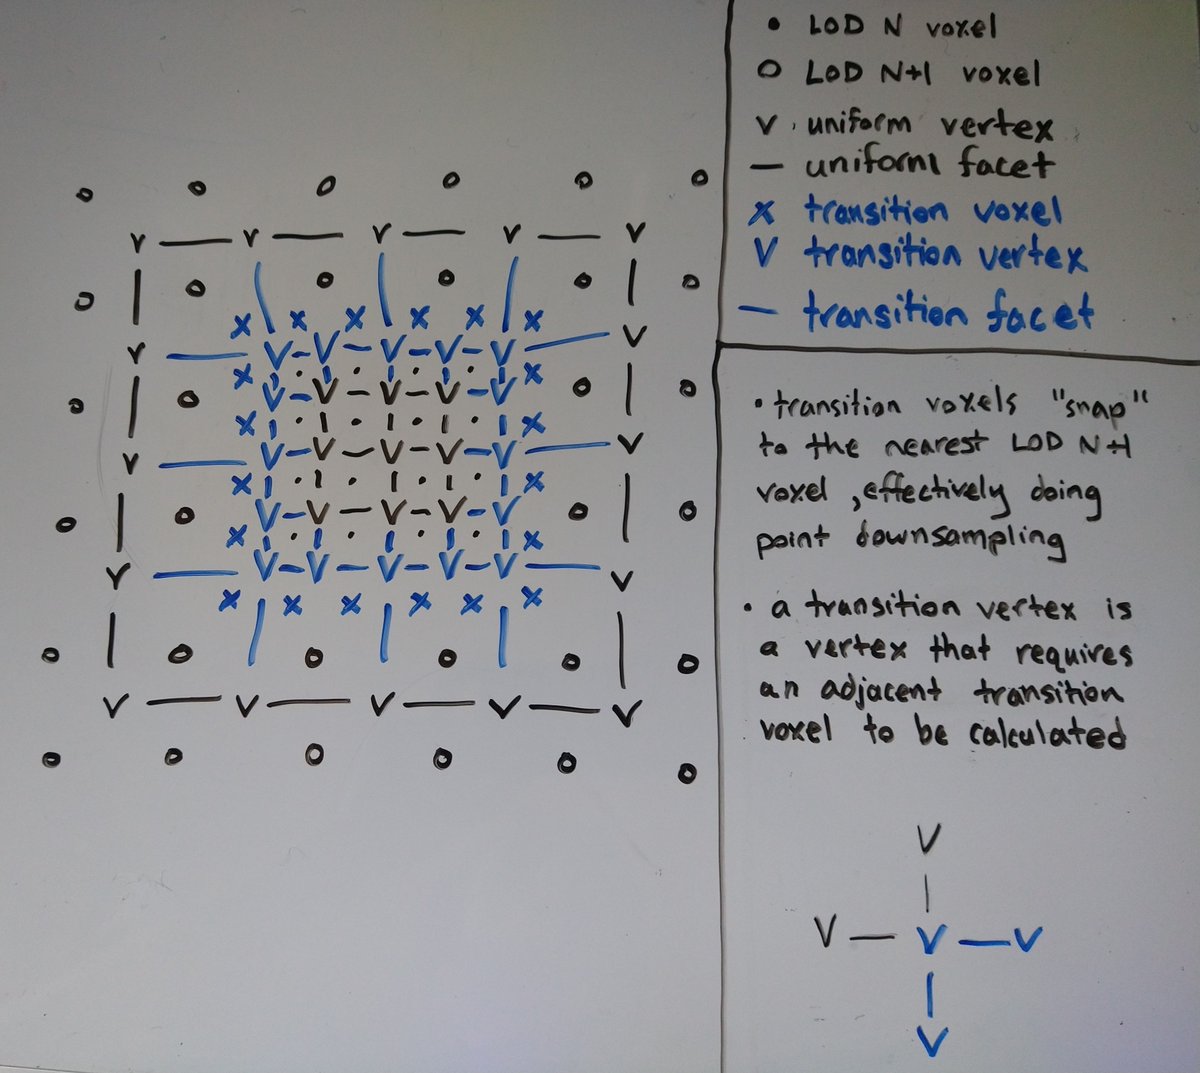 • LOD N voxel
o LOD N+1 voxel
v uniform vertex
— uniform facet
x transition voxel
V transition vertex
— transition facet
• transition voxels "snap"
to the nearest LOD N+1
voxel, effectively doing
point downsampling
• a transition vertex is
a vertex that requires
an adjacent transition
voxel to be calculated